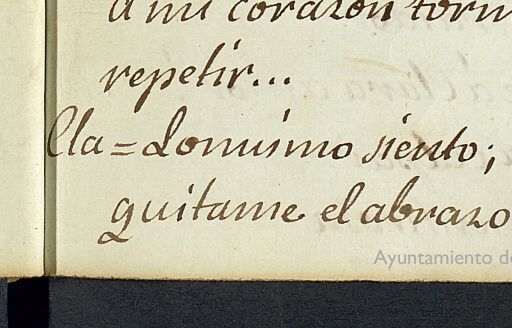 a mi corazon torm
repetir...
Cla = Lo mismo siento;
quitame el abrazo
Ayuntamiento de